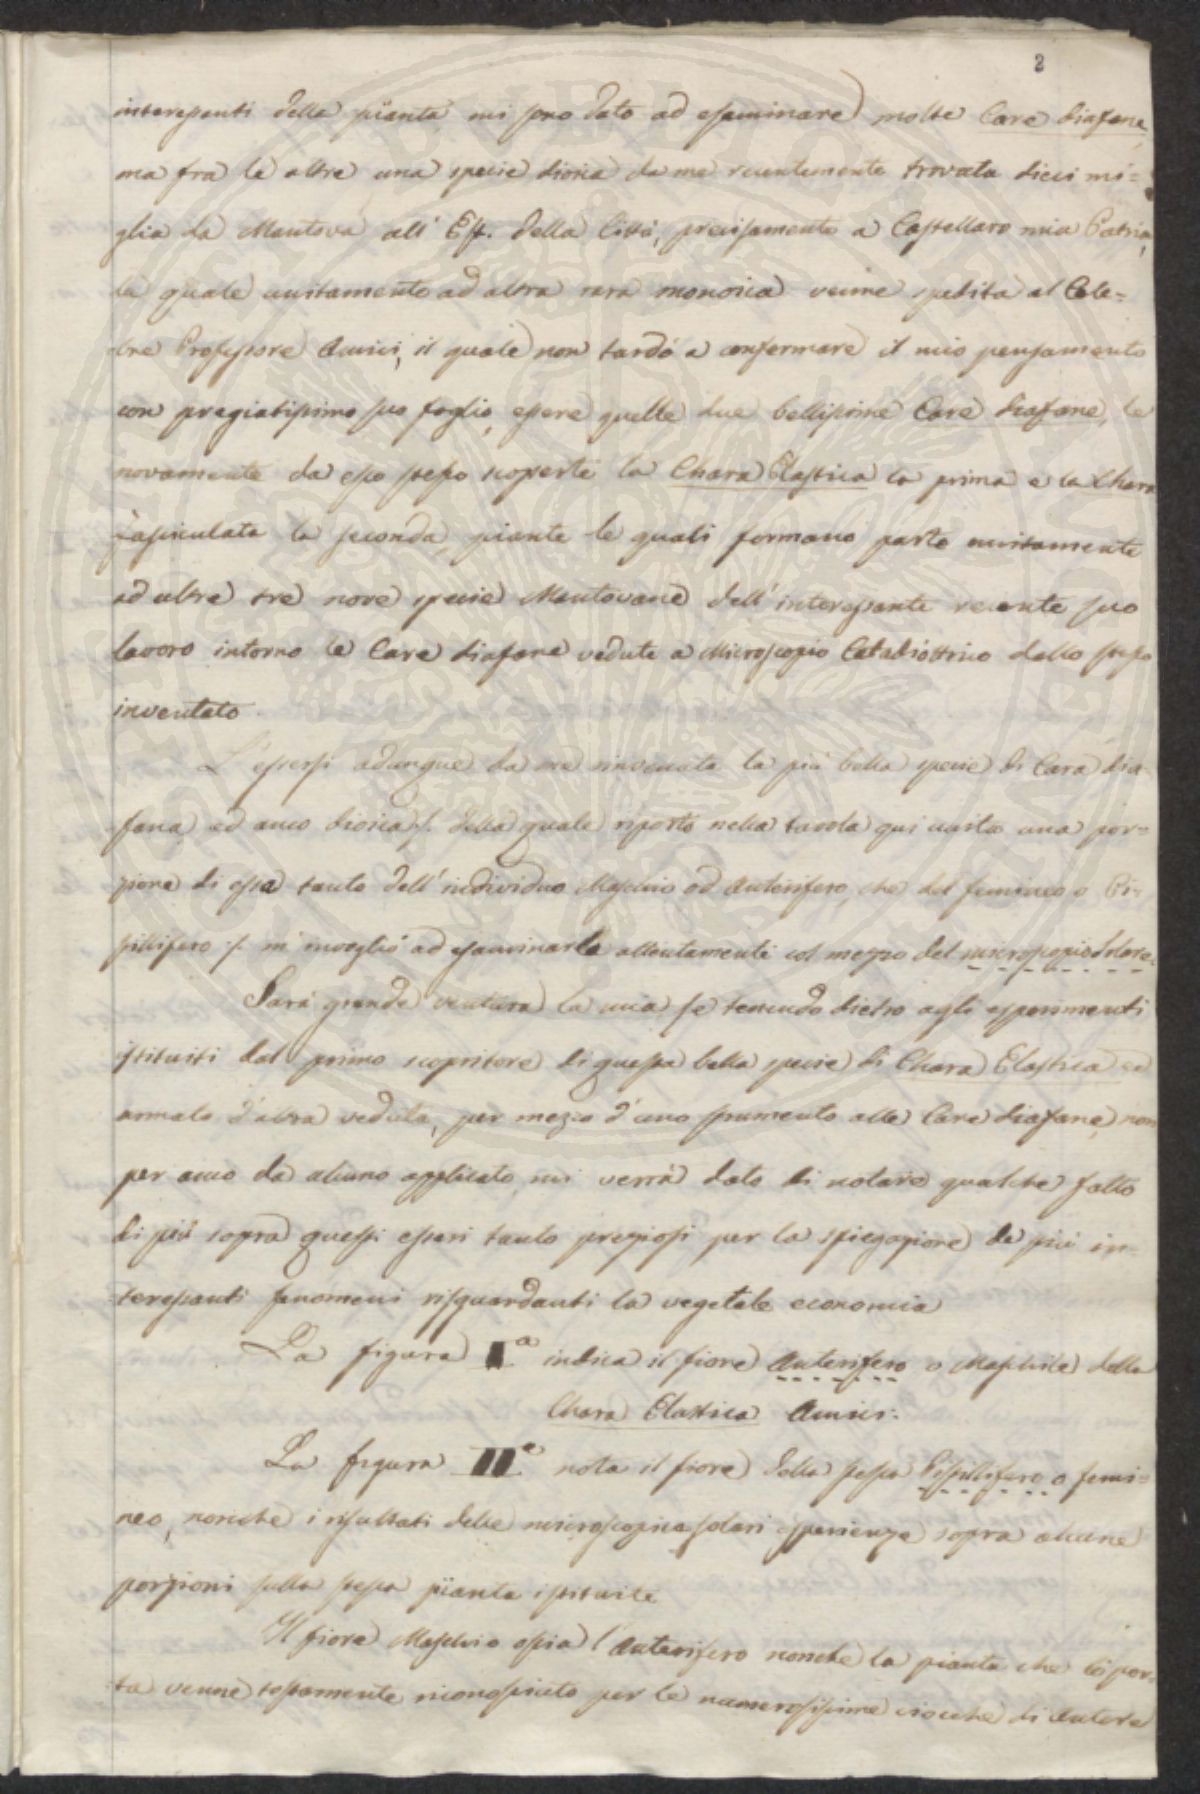 2
interessanti della pianta mi sono dato ad esaminare) molte Care diafane,
ma fra le altre una specie dioica da me recentemente trovata dieci mi=
glia da Mantova all' Est. della Città, precisamente a Castellaro mia Patria,
la quale unitamente ad altra rara monoica venne spedita al Cele=
bre Professore Amici, il quale non tardò a confermare il mio pensamento
con pregiatissimo suo foglio, essere quelle due bellissime Care diafane, le
novamente da esso stesso scoperte la Chara Elastica la prima e la Chara
Fasciculata la seconda, piante le quali formano parte unitamente
ad altre tre nove specie Mantovane dell' interessante recente suo
lavoro intorno le Care diafane vedute a Microscopio Catadiottrico dallo stesso
inventato.
L'essersi adunque da me rinvenuta la più bella specie di Cara dia
fana, ed anco dioica /: della quale riporto nella tavola qui unita una por=
zione di essa tanto dell' individuo Maschio od Anterifero, che del femineo o Pi=
stillifero :/ m' invogliò ad esaminarla attentamente col mezzo del microscopio Solare.
Sarà grande ventura la mia se tenendo dietro agli esperimenti
istituiti dal primo scopritore di questa bella specie di Chara Elastica ed
armato d'altra veduta, per mezzo d'uno strumento alle Care diafane, non
per anco da alcuno applicato, mi verrà dato di notare qualche fatto
di più sopra questi esseri tanto preziosi per la spiegazione de più in=
teressanti fenomeni risguardanti la vegetale economia
La figura I.a indica il fiore Anterifero o Maschile della
Chara Elastica Amici.
La figura II.a nota il fiore della stessa Pistillifero o femi=
neo, nonche i risultati delle microscopica solari esperienze sopra alcune
porzioni sulla stessa pianta istituite
Il fiore Maschio ossia l'Anterifero nonche la pianta che lo por=
ta venne tostamente riconosciuto per le numerosissime ciocche di Antere